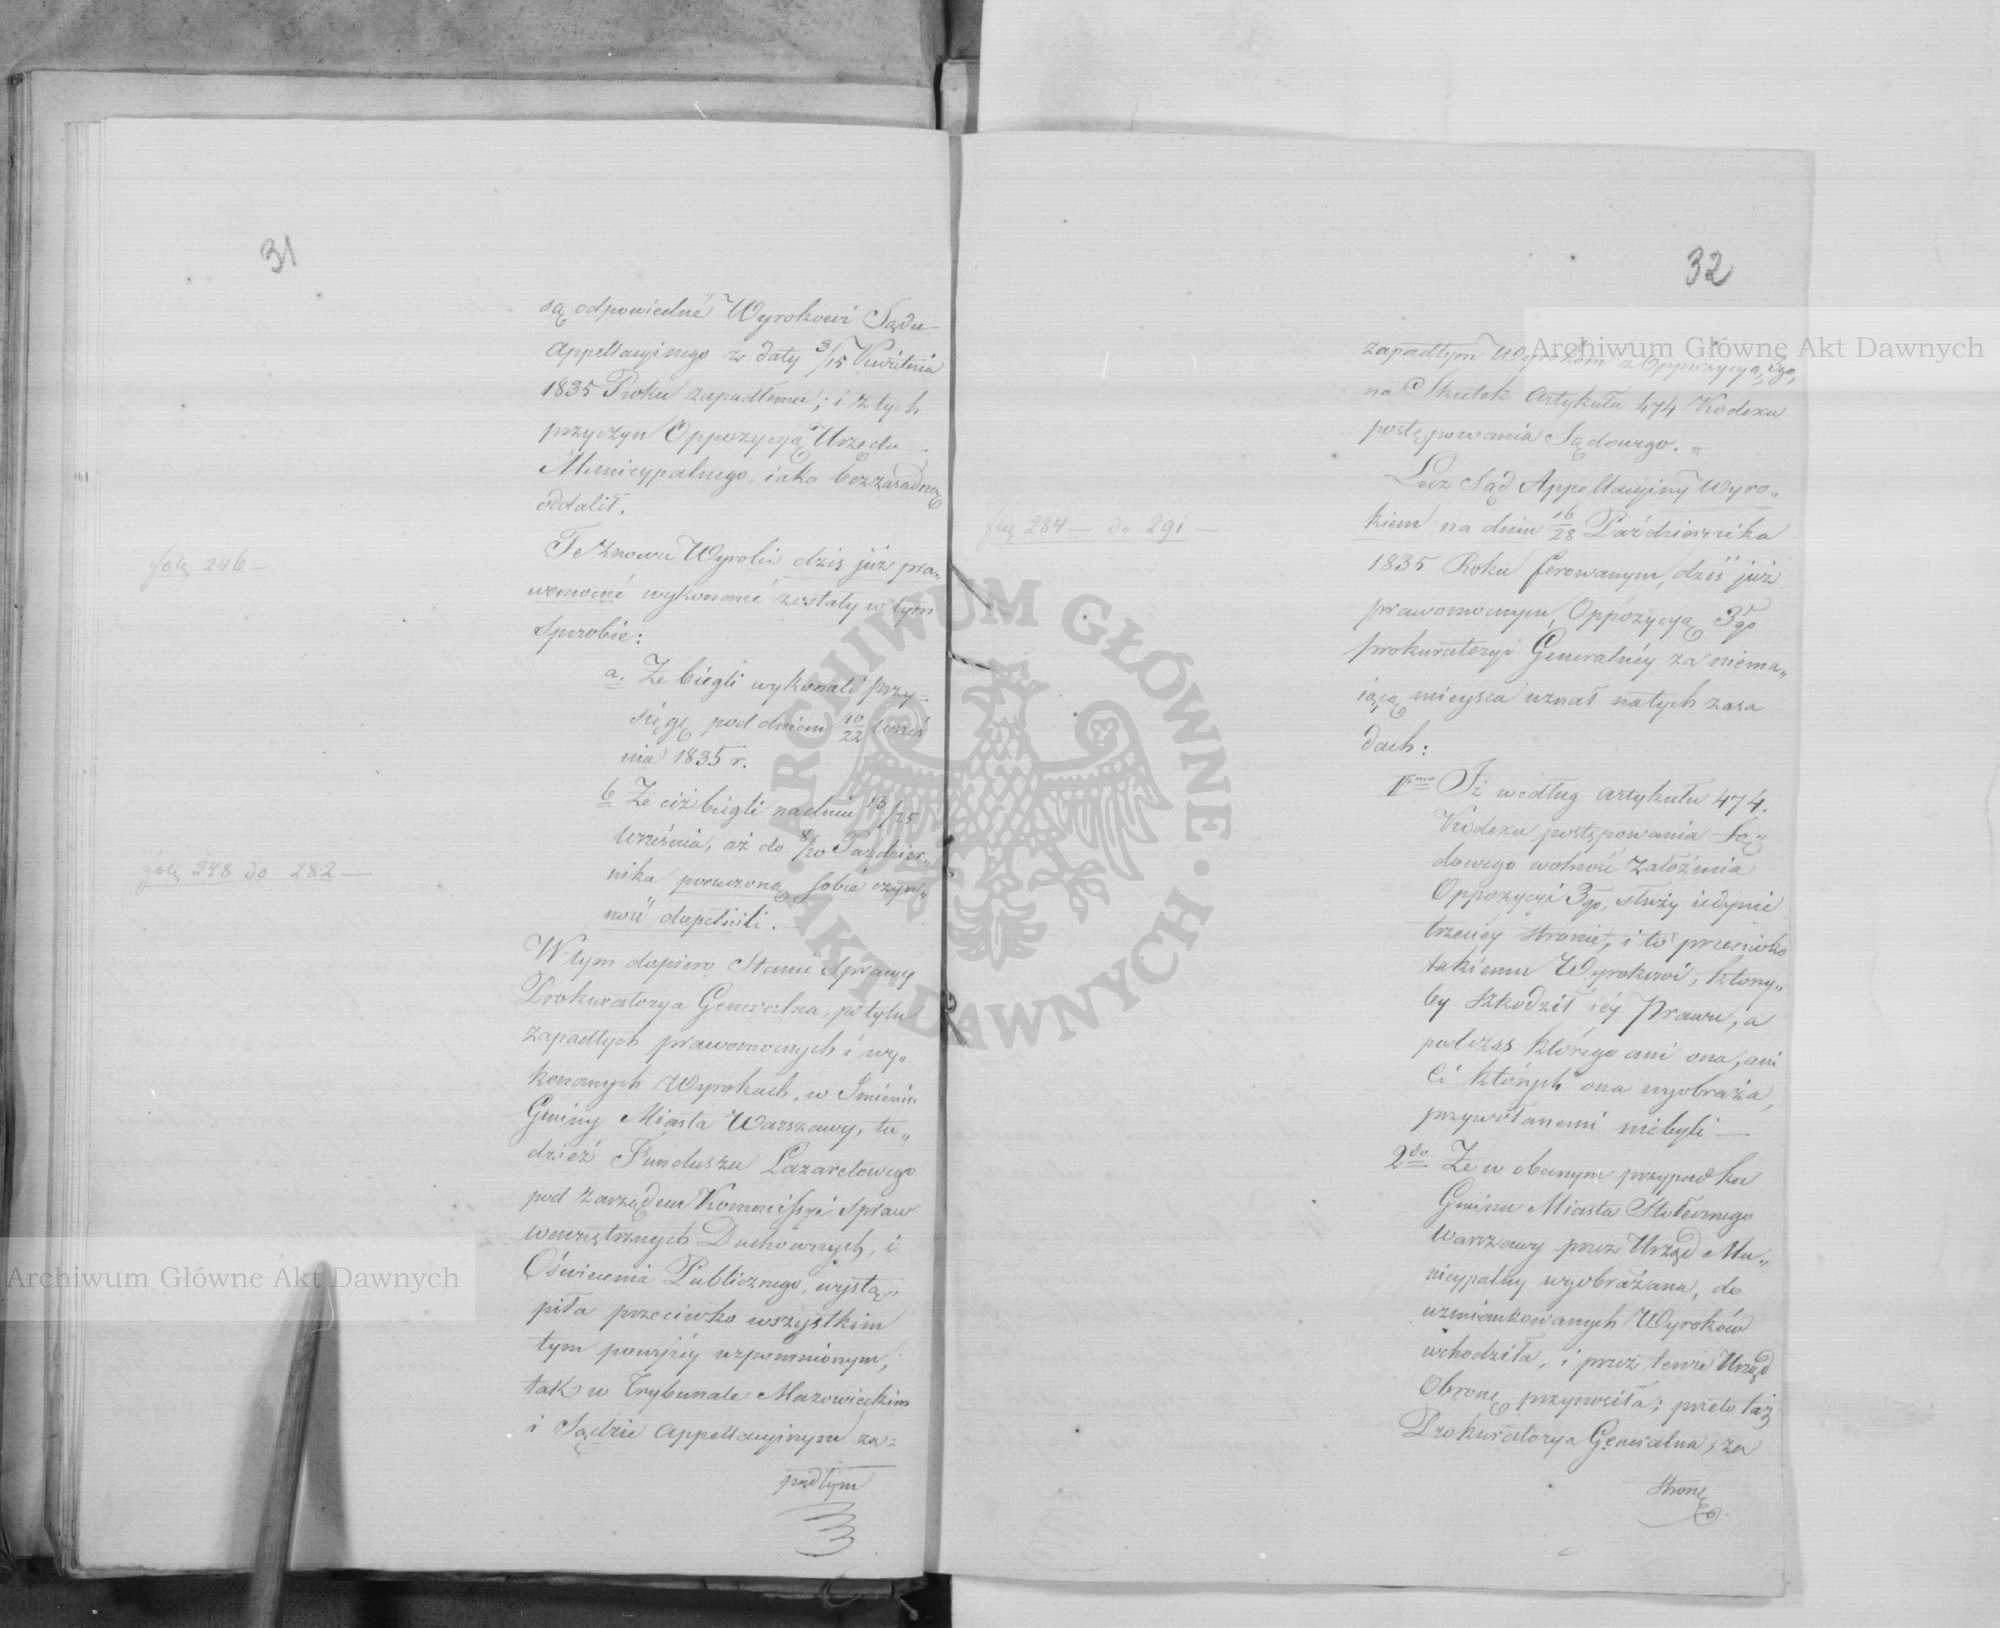 31
są odpowiedné Wyrokowi Sądu
Appellacyinego z daty 3/15 Kwietnia
1835 Roku zapadłemu; i z tych
przyczyn Oppozycyą Urzędu
Municypalnego, iako bezzasadną
oddalił.
Te znowu Wyroki dziś już pra„
womocné wykonané zostały w tym
Sposobie:
folę 246 —
a. Że biegli wykonali przy=
sięgę pod dniem 10/22 Wrześ
nia 1835 r.
b Że ciż biegli na dniu 13/25
Września, aż do 8/20 Paździer„
nika poruczoną sobie czyn„
ność dopełnili.
folę 248 do 282 —
W tym dopiero Stanie Sprawy
Prokuratorya Generalna, po tylu
zapadłych prawomocnych i wy„
konanych Wyrokach, w Imieniu
Gminy Miasta Warszawy, tu„
dzież Funduszu Lazaretowego
pod zarządem Kommissyi Spraw
wewnętrznych Duchownych, i
Oświecenia Publicznego, wystą„
piła przeciwko wszystkim
tym powyżéy wspomnionym,
tak w Trybunale Mazowieckim
i Sądzie Appellacyinym za=
padłym
32
zapadłym Wyrokom z Oppozycyą 3go,
na Skutek Artykułu 474 Kodexu
postępowania Sądowego. „
Lecz Sąd Appellacyiny Wyro„
kiem na dniu 16/28 Października
1835 Roku ferowanym, dziś już
prawomocnym, Oppozycyą 3go
prokuratoryi Generalnéy za niema„
iącą mieysca uznał na tych zasa
dach:
folę 284 — do 291 —
1mo Iż według Artykułu 474.
Kodexu postępowania Są„
dowego wolność założenia
Oppozycyi 3go, służy iedynie
trzeciéy stronie, i to przeciwko
takiemu Wyrokowi, który„
by szkodził iéy Prawu, a
podczas którego ani ona, ani
Ci których ona wyobraża,
przywołanemi niebyli —
2do Że w obecnym przypadku
Gmina Miasta Stołecznego
Warszawy przez Urząd Mu„
nicypalny wyobrażana, do
wzmiankowanych Wyroków
wchodziła, i przez tenże Urząd
Obronę przynosiła; przeto taż
Prokuratorya Generalna, za
Stronę
Archiwum Główne Akt Dawnych
Archiwum Główne Akt Dawnych
ARCHIWUM GŁÓWNE · AKT DAWNYCH ·